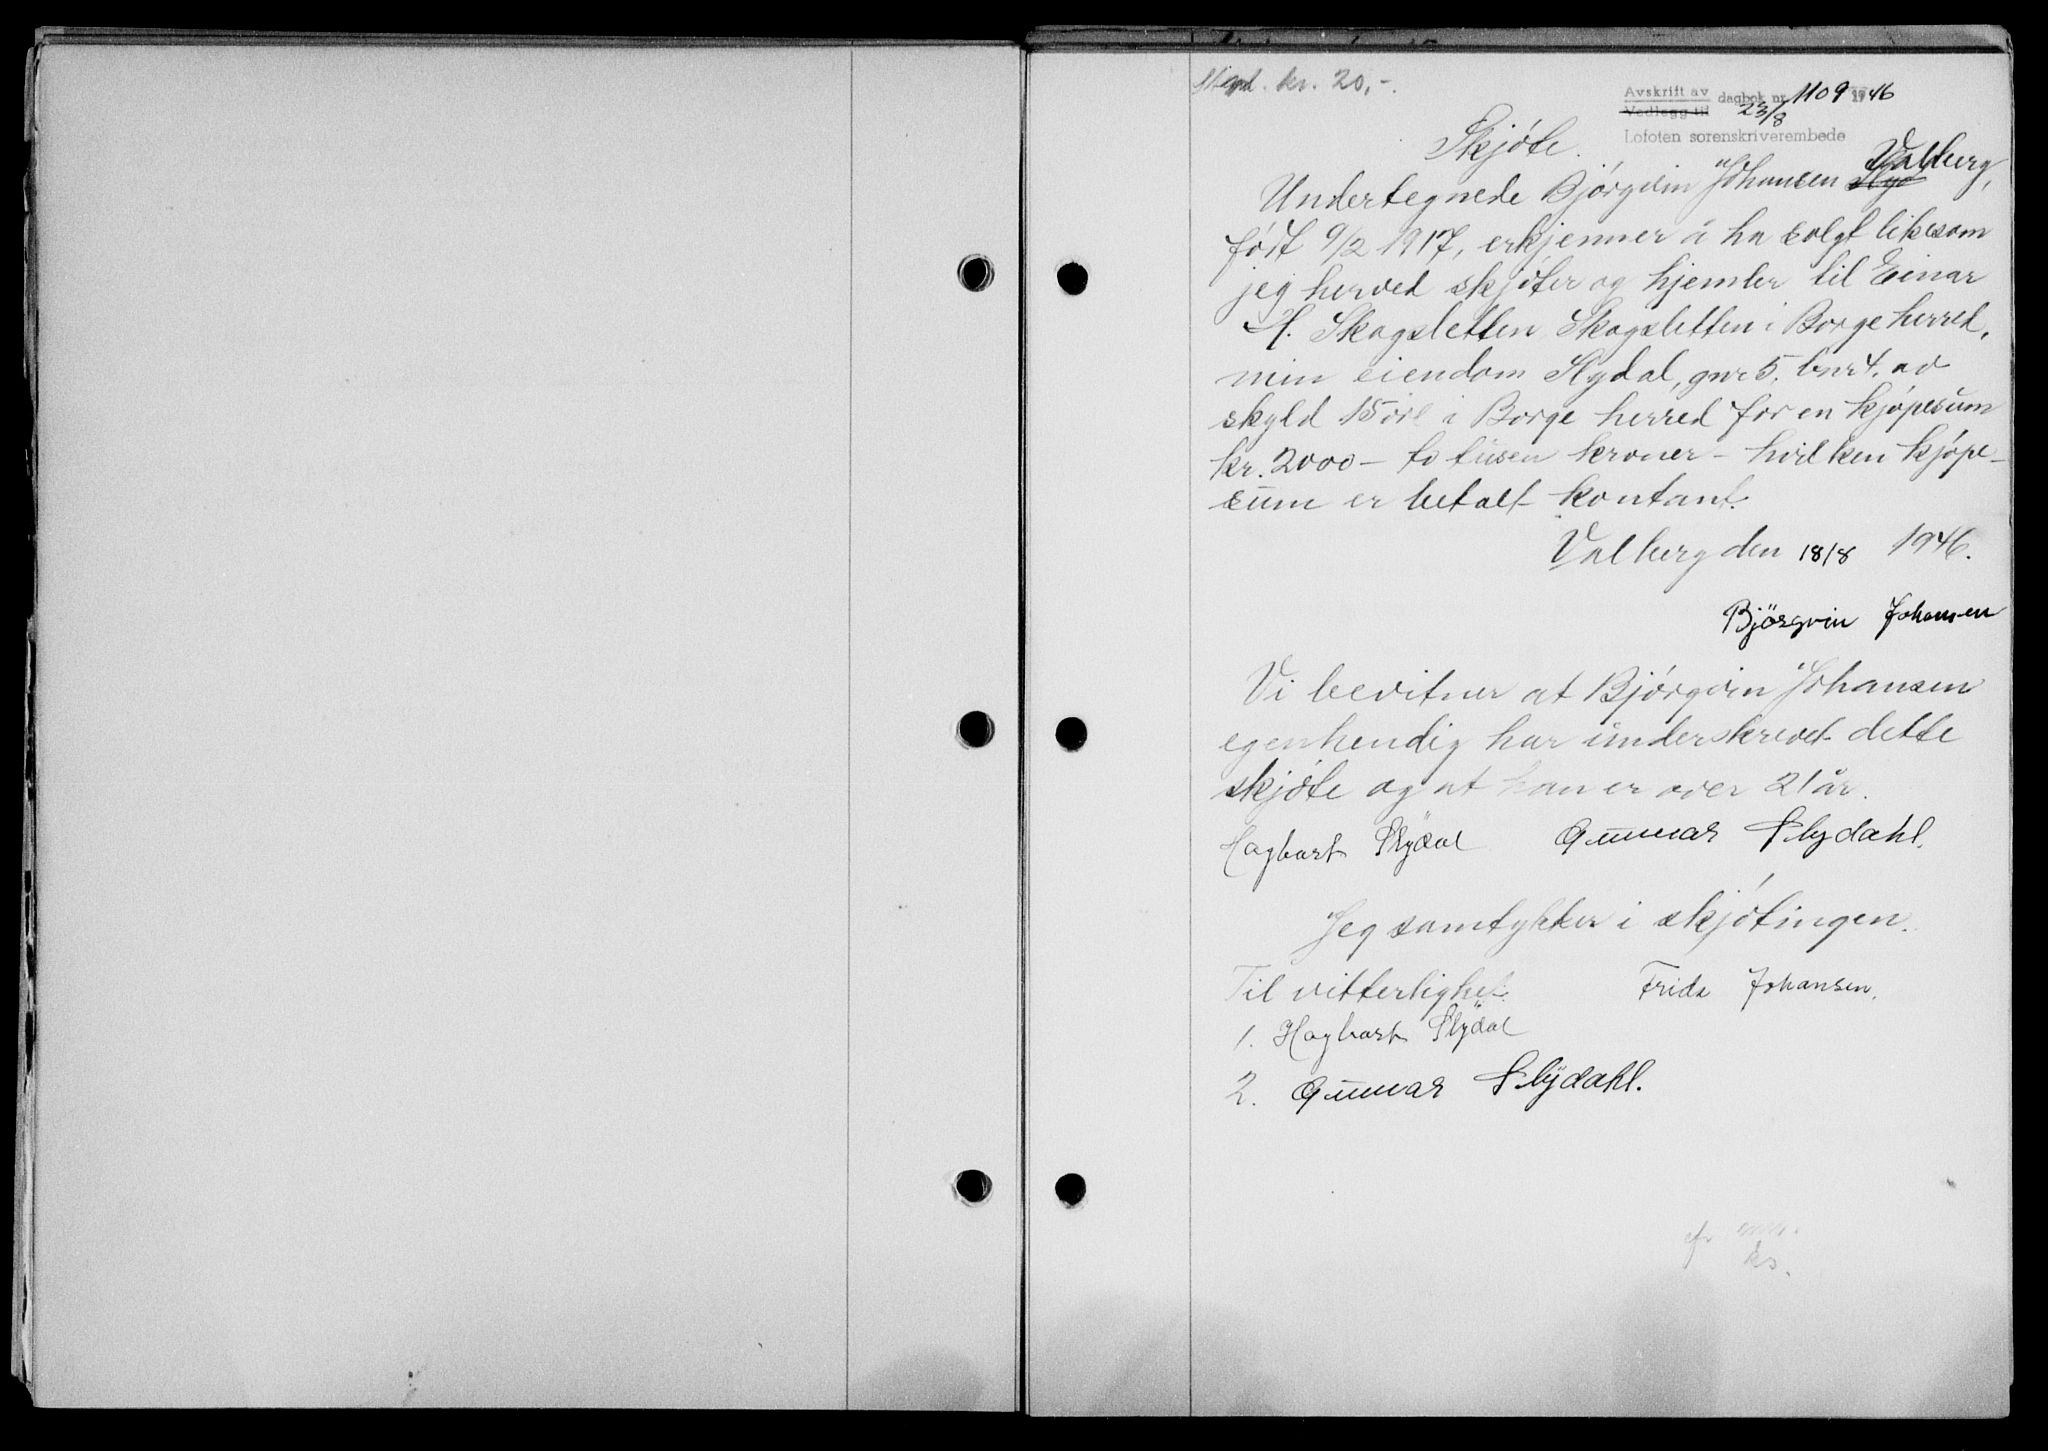 Stpd. kr. 20,-.
Avskrift av
Vedlegg til dagbok nr 1109 1946
23/8
Lofoten sorenskriverembede
Skjøte.
Undertegnede Bjørgvin Johansen Valberg,
født 9/2 1917, erkjenner å ha solgt likesom
jeg herved skjøter og hjemler til Einar
H. Skogsletten, Skogsletten i Borge herred,
min eiendom Slydal, gnr 5, bnr 4, av
skyld 15 øre i Borge herred for en kjøpesum
kr. 2000 – to tusen kroner – hvilken kjøpe-
sum er betalt kontant.
Valberg den 18/8 1946.
Bjørgvin Johansen
Vi bevitner at Bjørgvin Johansen
egenhendig har underskrevet dette
skjøte og at han er over 21 år.
Hagbart Slydal Gunnar Slydahl.
Jeg samtykker i skjøtingen.
Til vitterlighet. Frida Johansen.
1. Hagbart Slydal
2. Gunnar Slydahl.
ks.